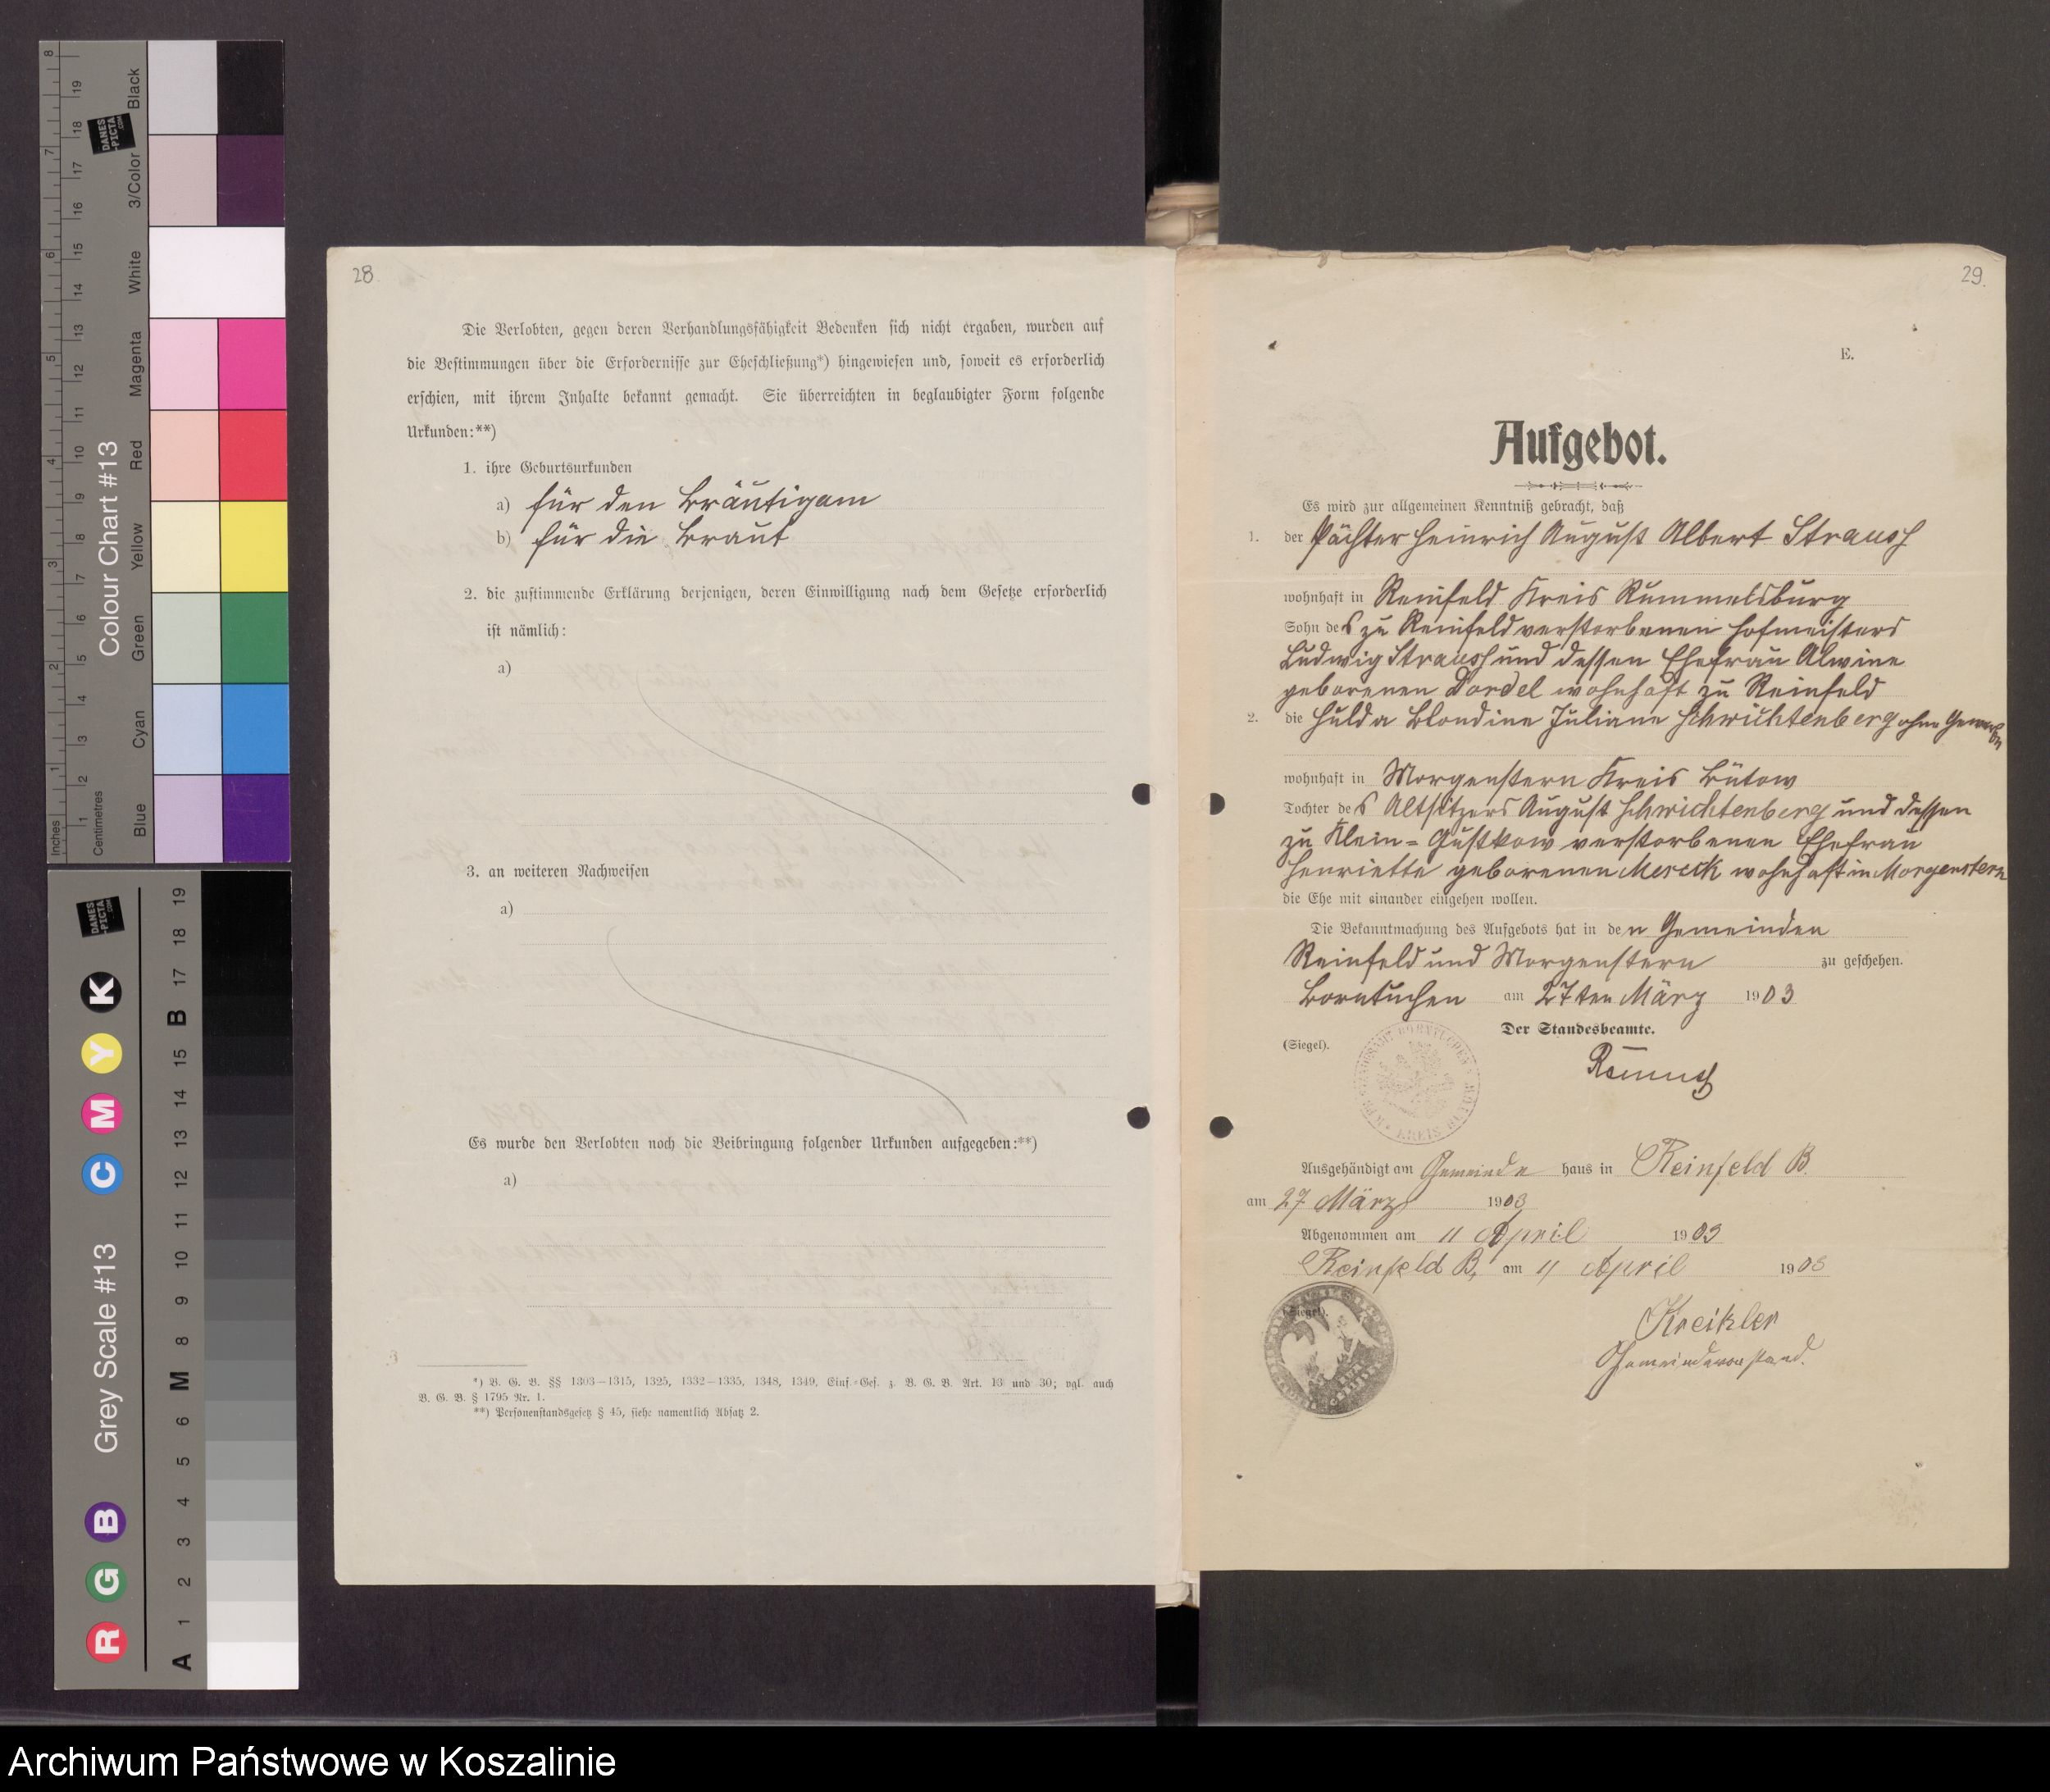 28.
Die Verlobten, gegen deren Verhandlungsfähigkeit Bedenken sich nicht ergaben, wurden auf
die Bestimmungen über die Erfordernisse zur Eheschließung*) hingewiesen und, soweit es erforderlich
erschien, mit ihrem Inhalte bekannt gemacht. Sie überreichten in beglaubigter Form folgende
Urkunden:**)
1. ihre Geburtsurkunden
a) für den Bräutigam
b) für die Braut
2. die zustimmende Erklärung derjenigen, deren Einwilligung nach dem Gesetze erforderlich
ist nämlich:
a)
3. an weiteren Nachweisen
a)
Es wurde den Verlobten noch die Beibringung folgender Urkunden aufgegeben:**)
a)
*) B. G. B. §§ 1303–1315, 1325, 1332–1335, 1348, 1349, Einf.-Ges. z. B. G. B. Art. 13 und 30; vgl. auch
B. G. B. § 1795 Nr. 1.
**) Personenstandsgesetz § 45, siehe namentlich Absatz 2.
29.
E.
Aufgebot.
Es wird zur allgemeinen Kenntniß gebracht, daß
1. der Pächter Heinrich August Albert Strauss
wohnhaft in Reinfeld Kreis Rummelsburg
Sohn des zu Reinfeld verstorbenen Hofmeisters
Ludwig Strauss und dessen Ehefrau Alwine
geborenen Dordel wohnhaft zu Reinfeld
2. die Hulda Blondine Juliane Schwichtenberg ohne Gewerbe
wohnhaft in Morgenstern Kreis Bütow
Tochter des Altsitzers August Schwichtenberg und dessen
zu Klein-Gustkow verstorbenen Ehefrau
Henriette geborenen Merck wohnhaft in Morgenstern
die Ehe mit einander eingehen wollen.
Die Bekanntmachung des Aufgebots hat in den Gemeinden
Reinfeld und Morgenstern zu geschehen.
Borntuchen am 27ten März 1903
Der Standesbeamte.
(Siegel).
KREIS
Ausgehändigt am Gemeinde haus in Reinfeld B.
am 27 März 1903
Abgenommen am 11 April 1903
Reinfeld B, am 11 April 1903
(Siegel).
Kreikler
Gemeindevorstand.
Colour Chart #13
Black
3/Color
White
Magenta
Red
Yellow
Green
Cyan
Blue
Inches
1 2 3 4 5 6 7 8
Centimetres
1 2 3 4 5 6 7 8 9 10 11 12 13 14 15 16 17 18 19
DANES
-PICTA
.COM
Grey Scale #13
R G B C M Y K
A 1 2 3 4 5 6 M 8 9 10 11 12 13 14 15 B 17 18 19
DANES
-PICTA
.COM
Archiwum Państwowe w Koszalinie